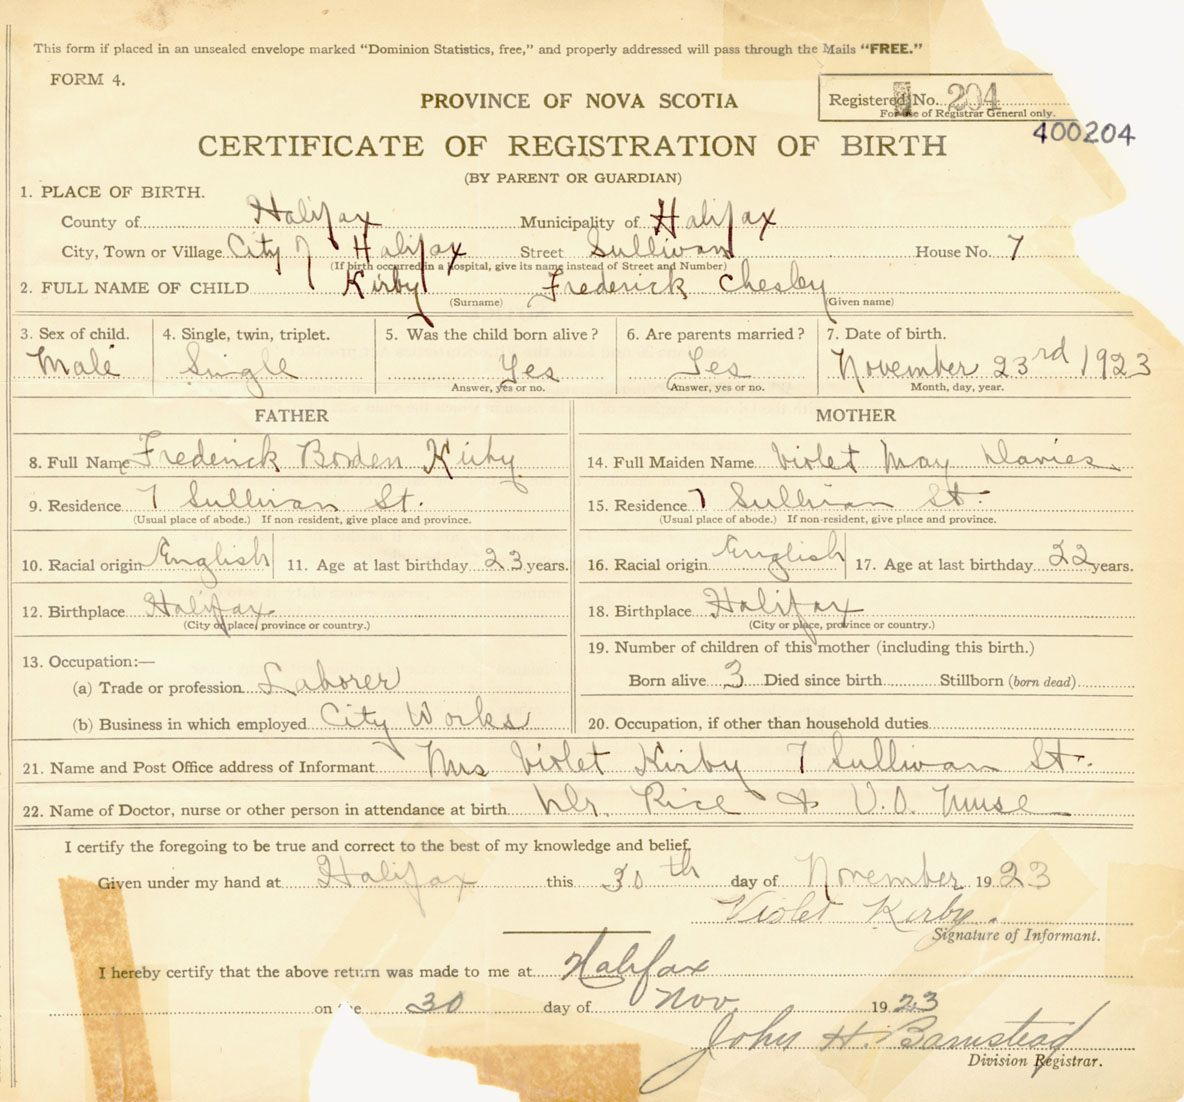 This form if placed in an unsealed envelope marked "Dominion Statistics, free," and properly addressed will pass through the Mails "FREE."
FORM 4.
Registered No. 204
For of Registrar General only.
400204
PROVINCE OF NOVA SCOTIA
CERTIFICATE OF REGISTRATION OF BIRTH
(BY PARENT OR GUARDIAN)
1. PLACE OF BIRTH.
County of Halifax Municipality of Halifax
City, Town or Village City of Halifax Street Sullivan House No. 7
(If birth occurred in a hospital, give its name instead of Street and Number)
2. FULL NAME OF CHILD Kirby Frederick Chesley
(Surname) (Given name)
3. Sex of child. 4. Single, twin, triplet. 5. Was the child born alive? 6. Are parents married? 7. Date of birth.
Male Single Yes Yes November 23rd 1923
Answer, yes or no. Answer, yes or no. Month, day, year.
FATHER MOTHER
8. Full Name Frederick Borden Kirby 14. Full Maiden Name Violet May Davies
9. Residence 7 Sullivan St. 15. Residence 7 Sullivan St.
(Usual place of abode.) If non-resident, give place and province. (Usual place of abode.) If non-resident, give place and province.
10. Racial origin English 11. Age at last birthday 23 years. 16. Racial origin English 17. Age at last birthday 22 years.
12. Birthplace Halifax 18. Birthplace Halifax
(City or place, province or country.) (City or place, province or country.)
13. Occupation:— 19. Number of children of this mother (including this birth.)
(a) Trade or profession Laborer Born alive 3 Died since birth Stillborn (born dead)
(b) Business in which employed City Works 20. Occupation, if other than household duties
21. Name and Post Office address of Informant Mrs Violet Kirby 7 Sullivan St.
22. Name of Doctor, nurse or other person in attendance at birth Dr. Rice & V.O. Nurse
I certify the foregoing to be true and correct to the best of my knowledge and belief.
Given under my hand at Halifax this 30th day of November 1923
Violet Kirby.
Signature of Informant.
I hereby certify that the above return was made to me at Halifax
on 30 day of Nov 1923
John H. Barnstead
Division Registrar.